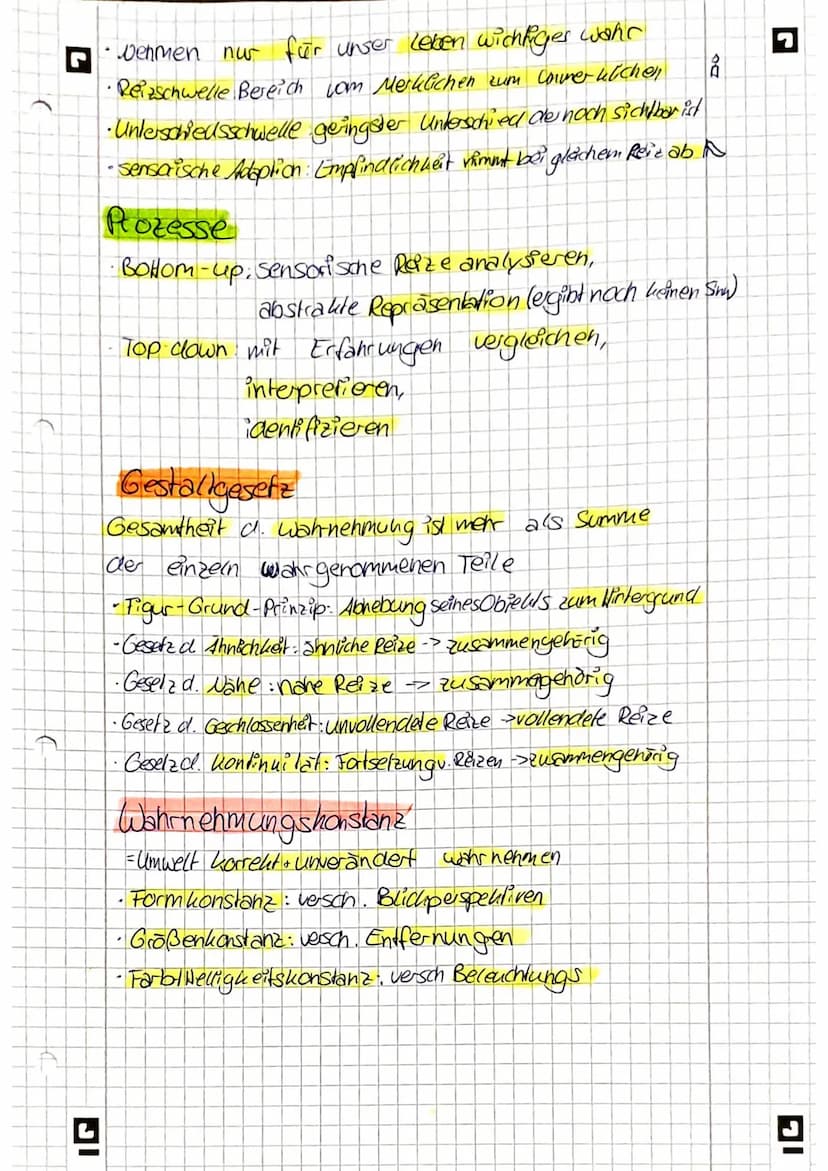 · nehmen nur für unser Leben wichtiges wahr
· Reizschwelle: Bereich vom Merklichen zum Unmerklichen
· Unterschiedsschwelle: geringster Unterschied der noch sichtbar ist
· sensorische Adaption: Empfindlichkeit nimmt bei gleichem Reiz ab
Prozesse
· Bottom-up: sensorische Reize analysieren,
abstrakte Repräsentation (ergibt noch keinen Sinn)
· Top-down: mit Erfahrungen vergleichen,
interpretieren,
identifizieren
Gestaltgesetz
Gesamtheit d. Wahrnehmung ist mehr als Summe
der einzeln wahrgenommenen Teile
· Figur-Grund-Prinzip: Abhebung seines Objekts zum Hintergrund
· Gesetz d. Ähnlichkeit: ähnliche Reize -> zusammengehörig
· Gesetz d. Nähe: nahe Reize -> zusammegehörig
· Gesetz d. Geschlossenheit: unvollendete Reize -> vollendete Reize
· Gesetz d. Kontinuität: Fortsetzung v. Reizen -> zusammengehörig
Wahrnehmungskonstanz
= Umwelt korrekt + unverändert wahrnehmen
· Formkonstanz: versch. Blickperspektiven
· Größenkonstanz: versch. Entfernungen
· Farb/Helligkeitskonstanz: versch Beleuchtungs